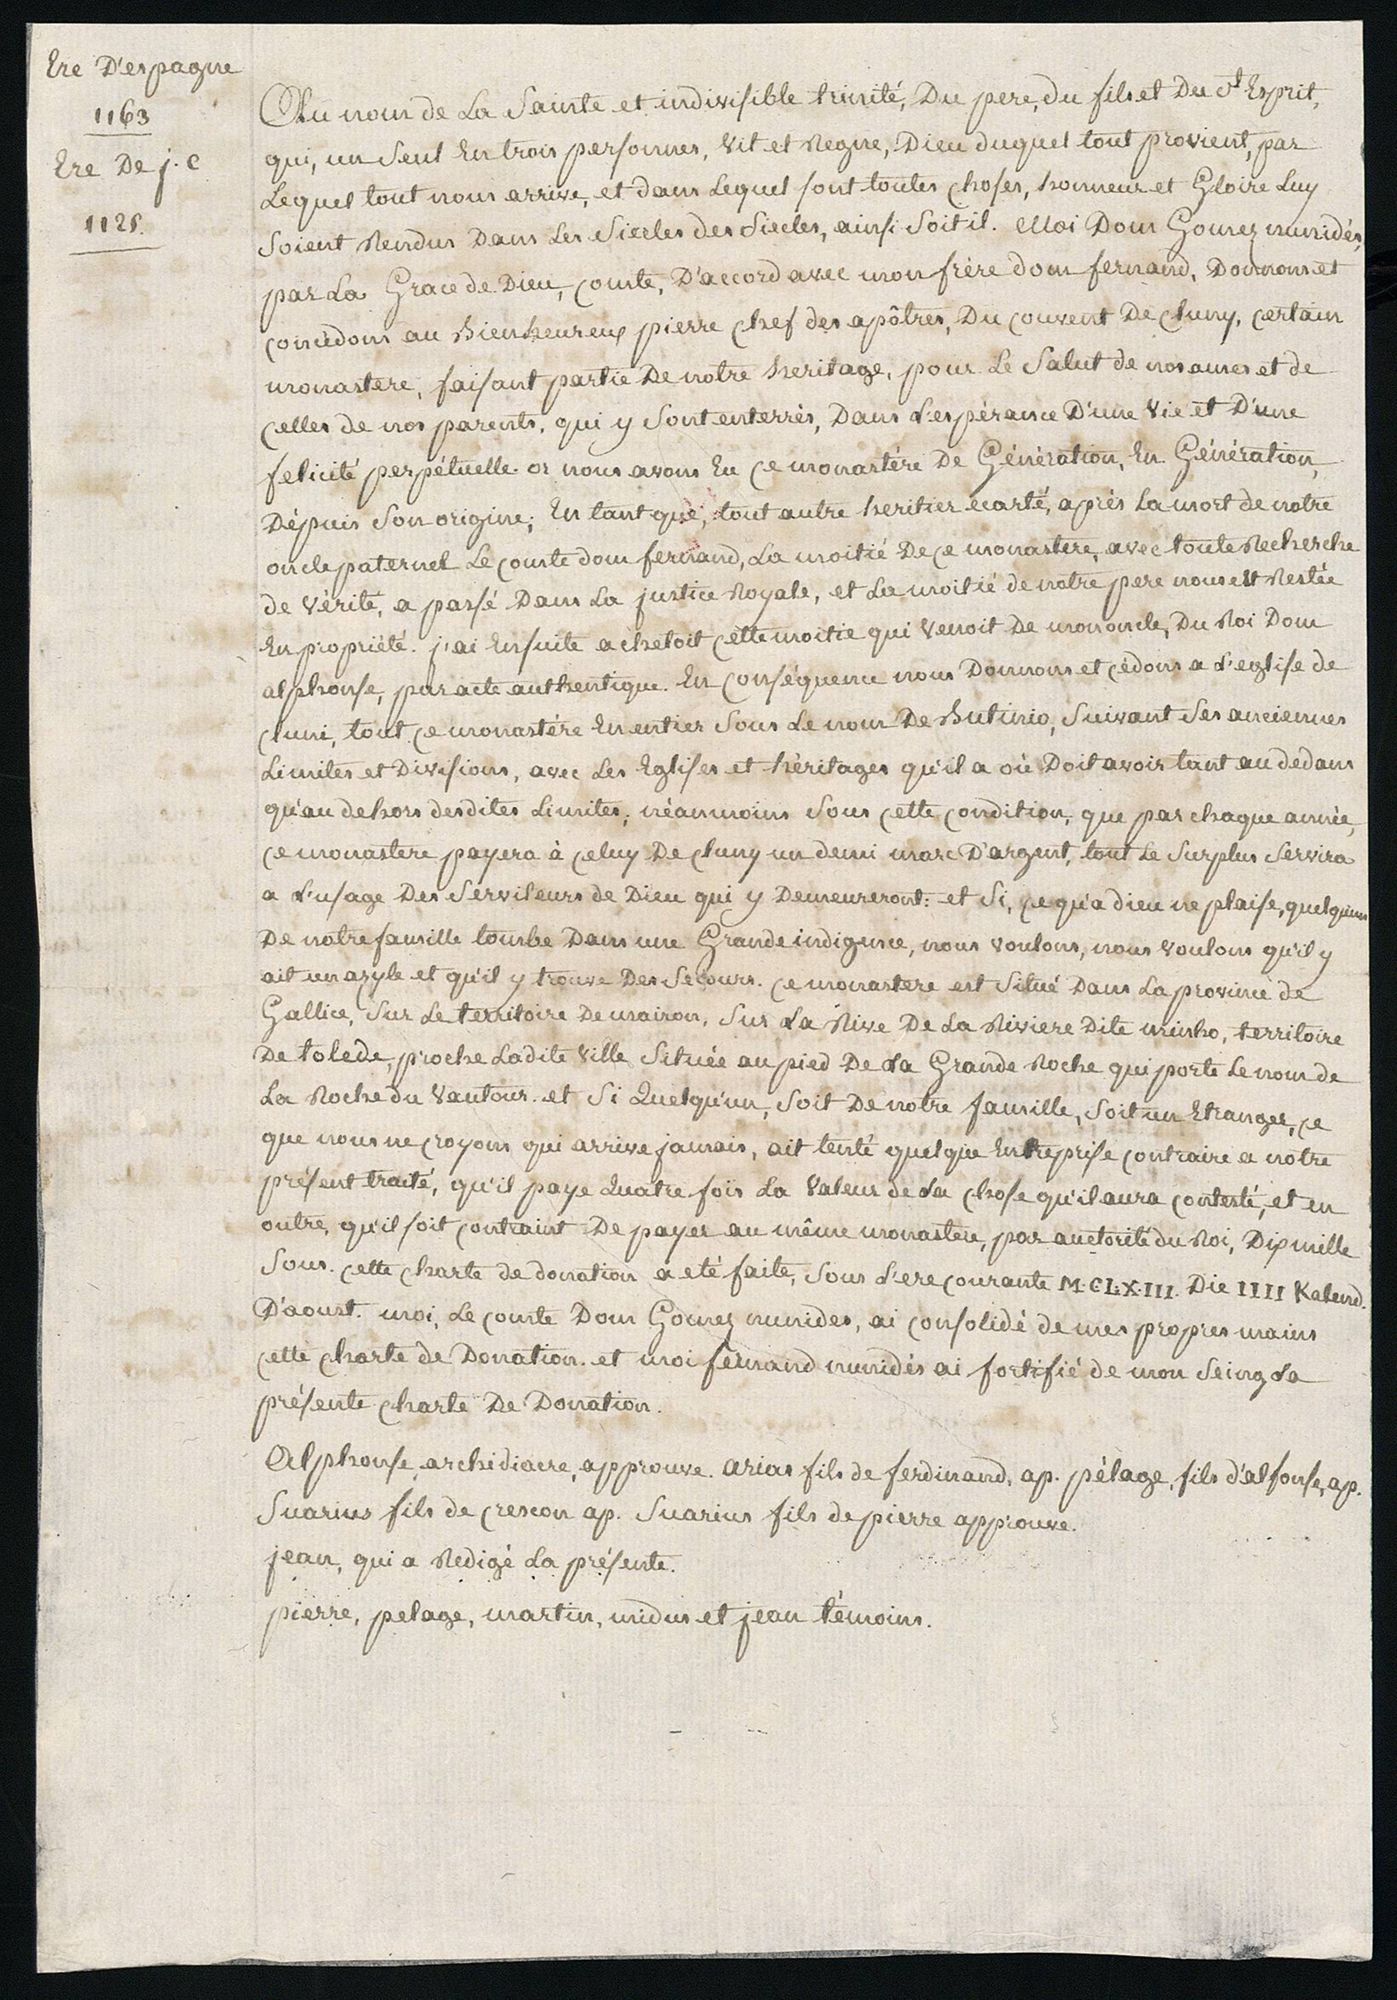 Ere D'espagne
1163
Ere De j. C
1125.
Au nom de La Sainte et indivisible trinité, Du pere, du fils et Du St Esprit,
qui, un seul En trois personnes, Vit et Regne, Dieu duquel tout provient, par
Lequel tout nous arrive, et dans Lequel sont toutes choses, honneur et Gloire Luy
Soient Rendus Dans Les Siecles des Siecles, ainsi Soit il. Moi Dom Gomez nunidés,
par La Grace de Dieu, comte, D'accord avec mon frère dom fernand, Donnons et
concedons au Bienheureux pierre chef des apôtres, Du couvent De Cluny, certain
monastere, faisant partie De notre heritage, pour Le Salut de nos ames et de
celles de nos parents, qui y Sont enterrés, Dans L'espérance D'une Vie et D'une
felicité perpétuelle. or nous avons Eu ce monastére De Génération, En Génération,
Dépuis Son origine; En tant que, tout autre heritier ecarté, aprés La mort de notre
oncle paternel Le comte dom fernand, La moitié De ce monastere, avec toute Recherche
de Vérité, a passé Dans La justice Royale, et La moitié de notre pere nous est Restée
En propriété. j'ai Ensuite achetoit cette moitie qui Venoit De mon oncle, Du Roi Dom
alphonse, par acte authentique. En conséquence nous Donnons et cédons a L'eglise de
cluni, tout ce monastére En entier Sous Le nom De Butinio, Suivant Ses anciennes
Limites et Divisions, avec Les Eglises et héritages qu'il a où Doit avoir tant au dedans
qu'au dehors desdites Limites; néanmoins Sous cette condition, que par chaque année,
ce monastere payera à celuy De cluny un demi marc D'argent, tout Le Surplus Servira
a L'usage Des Serviteurs de Dieu qui y Demeureront: et Si, ce qu'a dieu ne plaise, quelqu'un
De notre famille tombe Dans une Grande indigence, nous voulons, nous voulons qu'il y
ait un azyle et qu'il y trouve Des Secours. ce monastere est Situé Dans La province de
Gallice, Sur Le territoire De mairon, Sur La Rive De La Riviere Dite minho, territoire
De tolede, proche Ladite Ville Située au pied De La Grande Roche qui porte Le nom de
La Roche du Vautour. et Si Quelqu'un, Soit De notre famille, Soit un Etranger, ce
que nous ne croyons qui arrive jamais, ait tenté quelque Entreprise contraire a notre
présent traité, qu'il paye Quatre fois La Valeur de La chose qu'il aura contesté, et en
outre, qu'il soit contraint De payer au même monastere, par auctorité du Roi, Dix mille
Sous. cette charte de donation a eté faite, Sous L'ere courante M.CLX.III. Die IIII Kalend.
D'aoust. moi, Le comte Dom Gomez nunides, ai consolidé de mes propres mains
cette charte de Donation. et moi fernand nunidés ai fortifié de mon Seing La
présente charte De Donation.
Alphonse, archidiacre, approuve. Arias fils de ferdinand, ap. pélage, fils d'alfonse, ap.
Suarius fils de crescon ap. Suarius fils de pierre approuve.
jean, qui a Redigé La présente.
pierre, pelage, martin, midus et jean témoins.